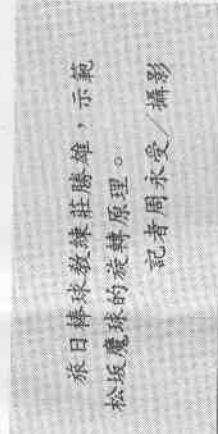 旅日棒球教練莊勝雄，示範
松坂魔球的旋轉原理。
記者周永受／攝影